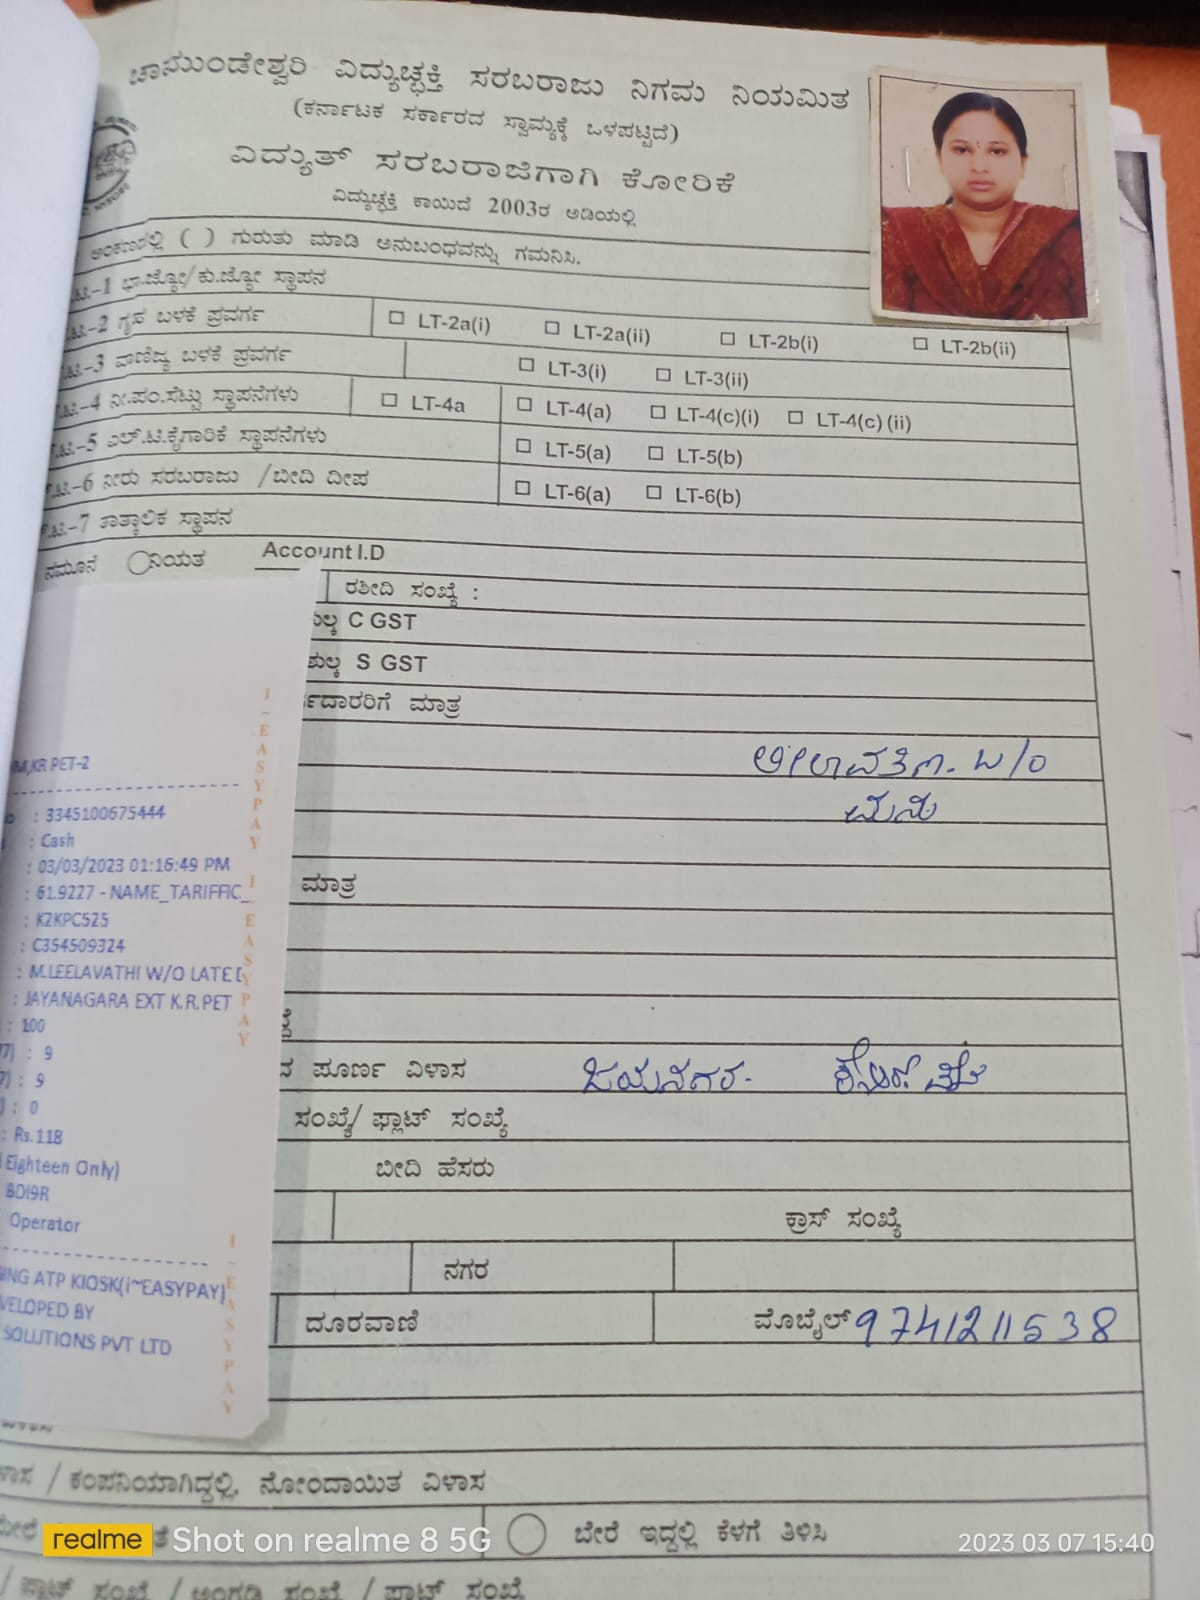 ಚಾಮುಂಡೇಶ್ವರಿ ವಿದ್ಯುಚ್ಛಕ್ತಿ ಸರಬರಾಜು ನಿಗಮ ನಿಯಮಿತ
(ಕರ್ನಾಟಕ ಸರ್ಕಾರದ ಸ್ವಾಮ್ಯಕ್ಕೆ ಒಳಪಟ್ಟಿದೆ)
ವಿದ್ಯುತ್ ಸರಬರಾಜಿಗಾಗಿ ಕೋರಿಕೆ
ವಿದ್ಯುಚ್ಛಕ್ತಿ ಕಾಯಿದೆ 2003ರ ಅಡಿಯಲ್ಲಿ
ಅಂಕಣದಲ್ಲಿ ( ) ಗುರುತು ಮಾಡಿ ಅನುಬಂಧವನ್ನು ಗಮನಿಸಿ.
-1 ಭಾ.ಜ್ಯೋ/ಕು.ಜ್ಯೋ ಸ್ಥಾಪನ
-2 ಗೃಹ ಬಳಕೆ ಪ್ರವರ್ಗ LT-2a(i) LT-2a(ii) LT-2b(i) LT-2b(ii)
-3 ವಾಣಿಜ್ಯ ಬಳಕೆ ಪ್ರವರ್ಗ LT-3(i) LT-3(ii)
-4 ನೀ.ಪಂ.ಸೆಟ್ಟು ಸ್ಥಾಪನೆಗಳು LT-4a LT-4(a) LT-4(c)(i) LT-4(c) (ii)
-5 ಎಲ್.ಟಿ.ಕೈಗಾರಿಕೆ ಸ್ಥಾಪನೆಗಳು LT-5(a) LT-5(b)
-6 ನೀರು ಸರಬರಾಜು /ಬೀದಿ ದೀಪ LT-6(a) LT-6(b)
-7 ತಾತ್ಕಾಲಿಕ ಸ್ಥಾಪನ
ನಮೂನೆ ನಿಯತ Account I.D
ರಶೀದಿ ಸಂಖ್ಯೆ :
C GST
ಶುಲ್ಕ S GST
ಮಾತ್ರ
ಲೀಲಾವತಿ.ಎಂ. W/O
ಮಾತ್ರ
ಪೂರ್ಣ ವಿಳಾಸ ಜಯನಗರ.
ಸಂಖ್ಯೆ/ ಫ್ಲಾಟ್ ಸಂಖ್ಯೆ
ಬೀದಿ ಹೆಸರು
ಕ್ರಾಸ್ ಸಂಖ್ಯೆ
ನಗರ
ದೂರವಾಣಿ ಮೊಬೈಲ್ 9741211538
/ ಕಂಪನಿಯಾಗಿದ್ದಲ್ಲಿ, ನೋಂದಾಯಿತ ವಿಳಾಸ
ಬೇರೆ ಇದ್ದಲ್ಲಿ ಕೆಳಗೆ ತಿಳಿಸಿ
/ ಪ್ಲಾಟ್ ಸಂಖ್ಯೆ / ಅಂಗಡಿ ಸಂಖ್ಯೆ / ಫ್ಲಾಟ್ ಸಂಖ್ಯೆ
KR PET-2
: 3345100675444
: Cash
: 03/03/2023 01:16:49 PM
: 61.9227 - NAME_TARIFFIC_
: K2KPC525
: C354509324
: M.LEELAVATHI W/O LATE
: JAYANAGARA EXT K.R.PET
: 100
: 9
: 9
: 0
: Rs.118
Eighteen Only)
BDI9R
Operator
ATP KIOSK(i~EASYPAY)
SOLUTIONS PVT LTD
I ~ EASYPAY
I ~ EASYPAY
I ~ EASYPAY
realme Shot on realme 8 5G
2023 03 07 15:40